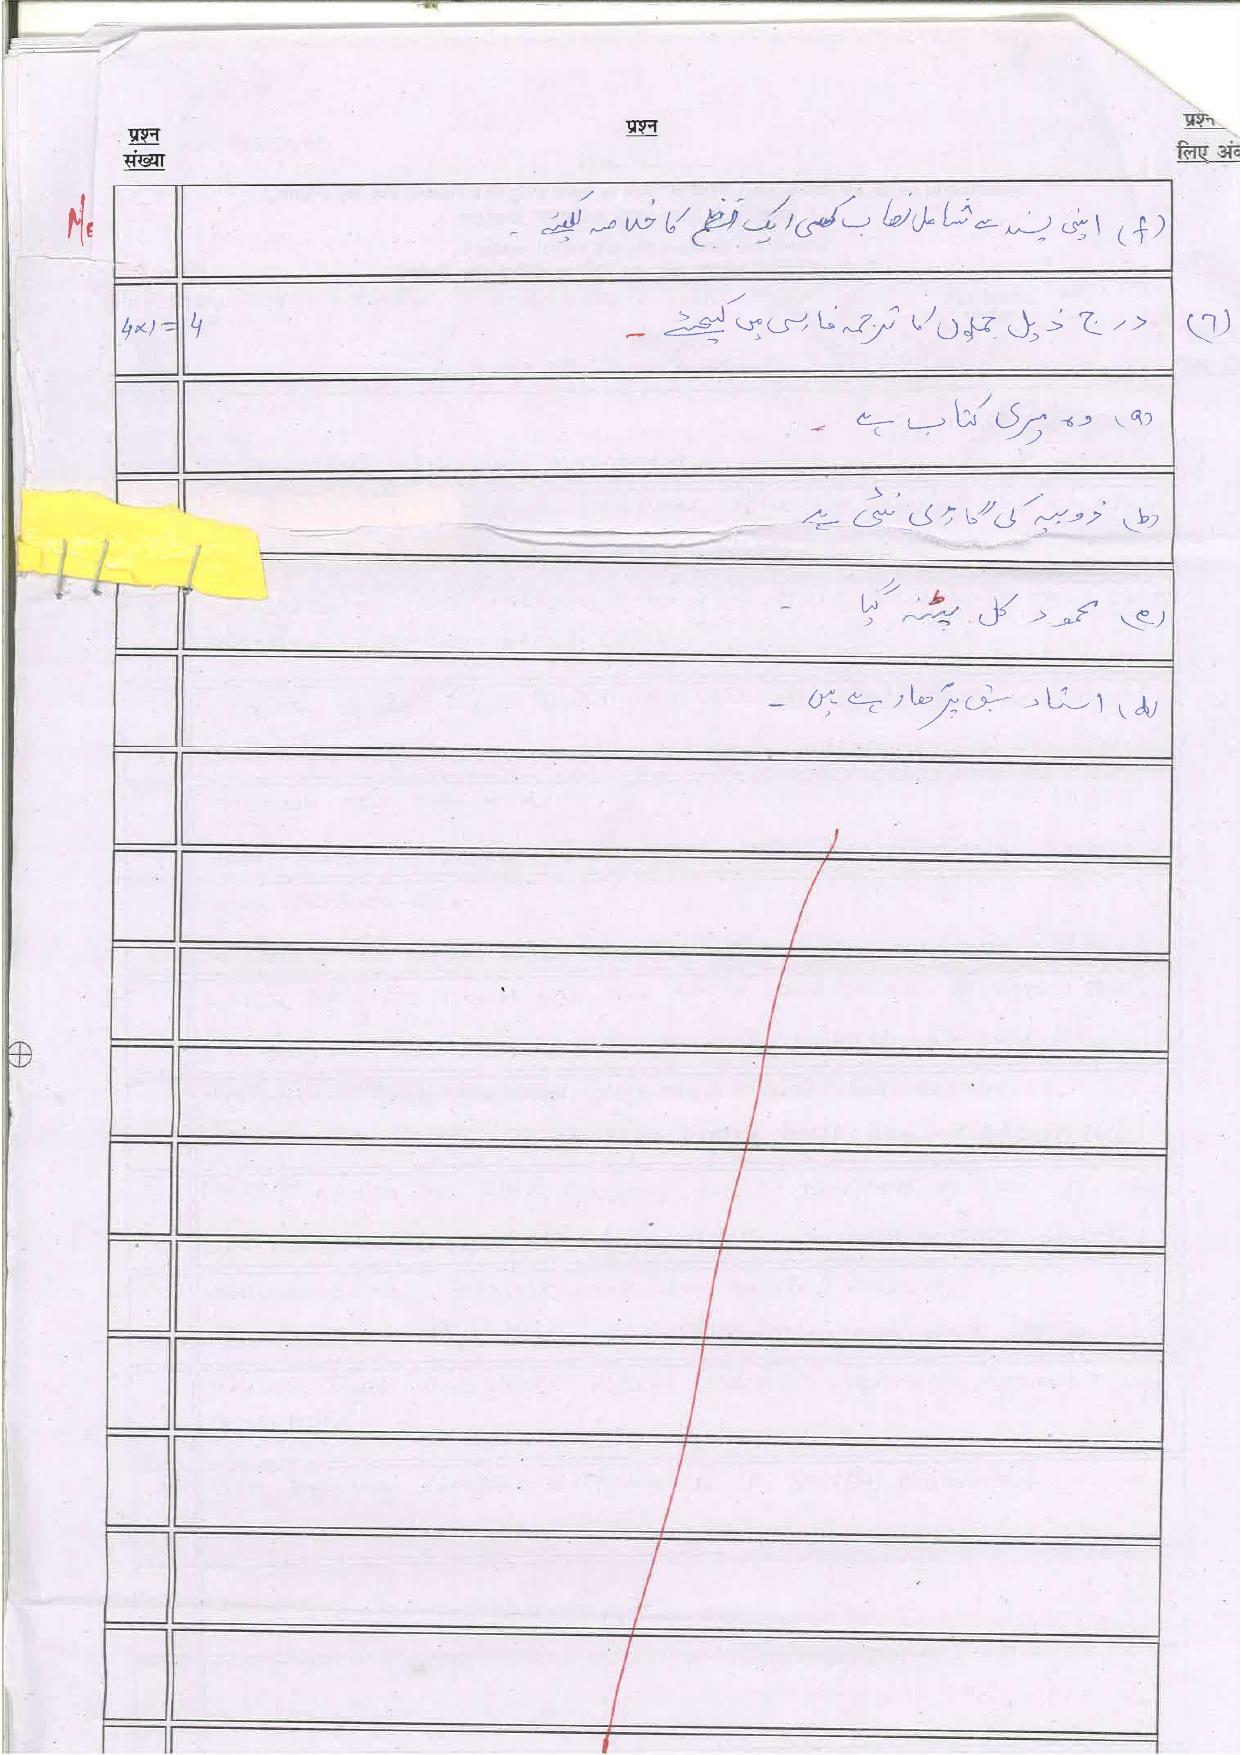 प्रश्न
संख्या
प्रश्न
लिए अंक
(f) اپنی پسند سے شامل نصاب کسی ایک نظم کا خلاصہ لکھیئے ۔
(٦) درج ذیل جملوں کا ترجمہ فارسی میں کیجئے ۔ 4x1=4
(a) وہ میری کتاب ہے ۔
(b) زوبیہ کی گاڑی نئی ہے
(c) محمود کل پٹنہ گیا ۔
(d) استاد سبق پڑھا رہے ہیں ۔